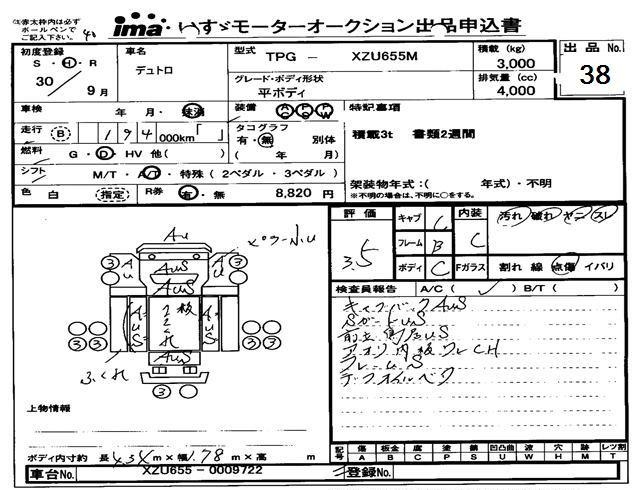 注)赤太枠内は必ず
ボールペンで
ご記入下さい。
ima いすゞモーターオークション出品申込書
初度登録 S・H・R 30 年 9月
車名 デュトロ
型式 TPG - XZU655M
グレード・ボディ形状 平ボディ
積載 (kg) 3,000
排気量 (cc) 4,000
出品 No. 38
車検 年・月・抹消
装備 AC PS PW
特記事項
走行 B 194000km「 」
タコグラフ 有・無 別体
( 年 月)
積載3t 書類2週間
燃料 G・D・HV 他( )
シフト M/T・A/T・特殊(2ペダル・3ペダル)
架装物年式:( 年式)・不明
※不明の場合は、不明に○をする。
色 白 指定 R券 有・無 8,820 円
評価 3.5
キャブ C
フレーム B
ボディ C
内装 C
汚れ・破れ・ヤニ・スレ
Fガラス 割れ 線 点傷 イバリ
検査員報告 A/C( ✓ )B/T( )
キャブバックAUS
SガードUS
アオリ内板ワレCH
フレームS
AU
AUS
AUS
AUS
3
3
3
3
3
上物情報
ボディ内寸約 長4.34m×幅1.78m×高 m
車台No. XZU655-0009722
登録No.
記号 傷A 板金B 腐C 塗P 錆S 凹凸曲U 波W 穴H 跡M レツ割T